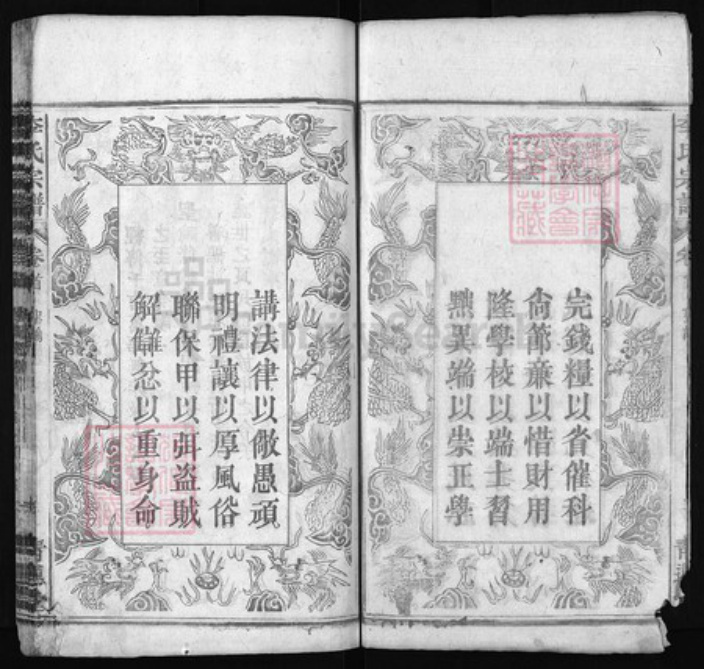 完錢糧以省催科
尙節㢘以惜財用
隆學校以端士習
黜異端以崇正學
講法律以儆愚頑
明禮讓以厚風俗
聯保甲以弭盜賊
解讎忿以重身命
李氏宗譜
卷首